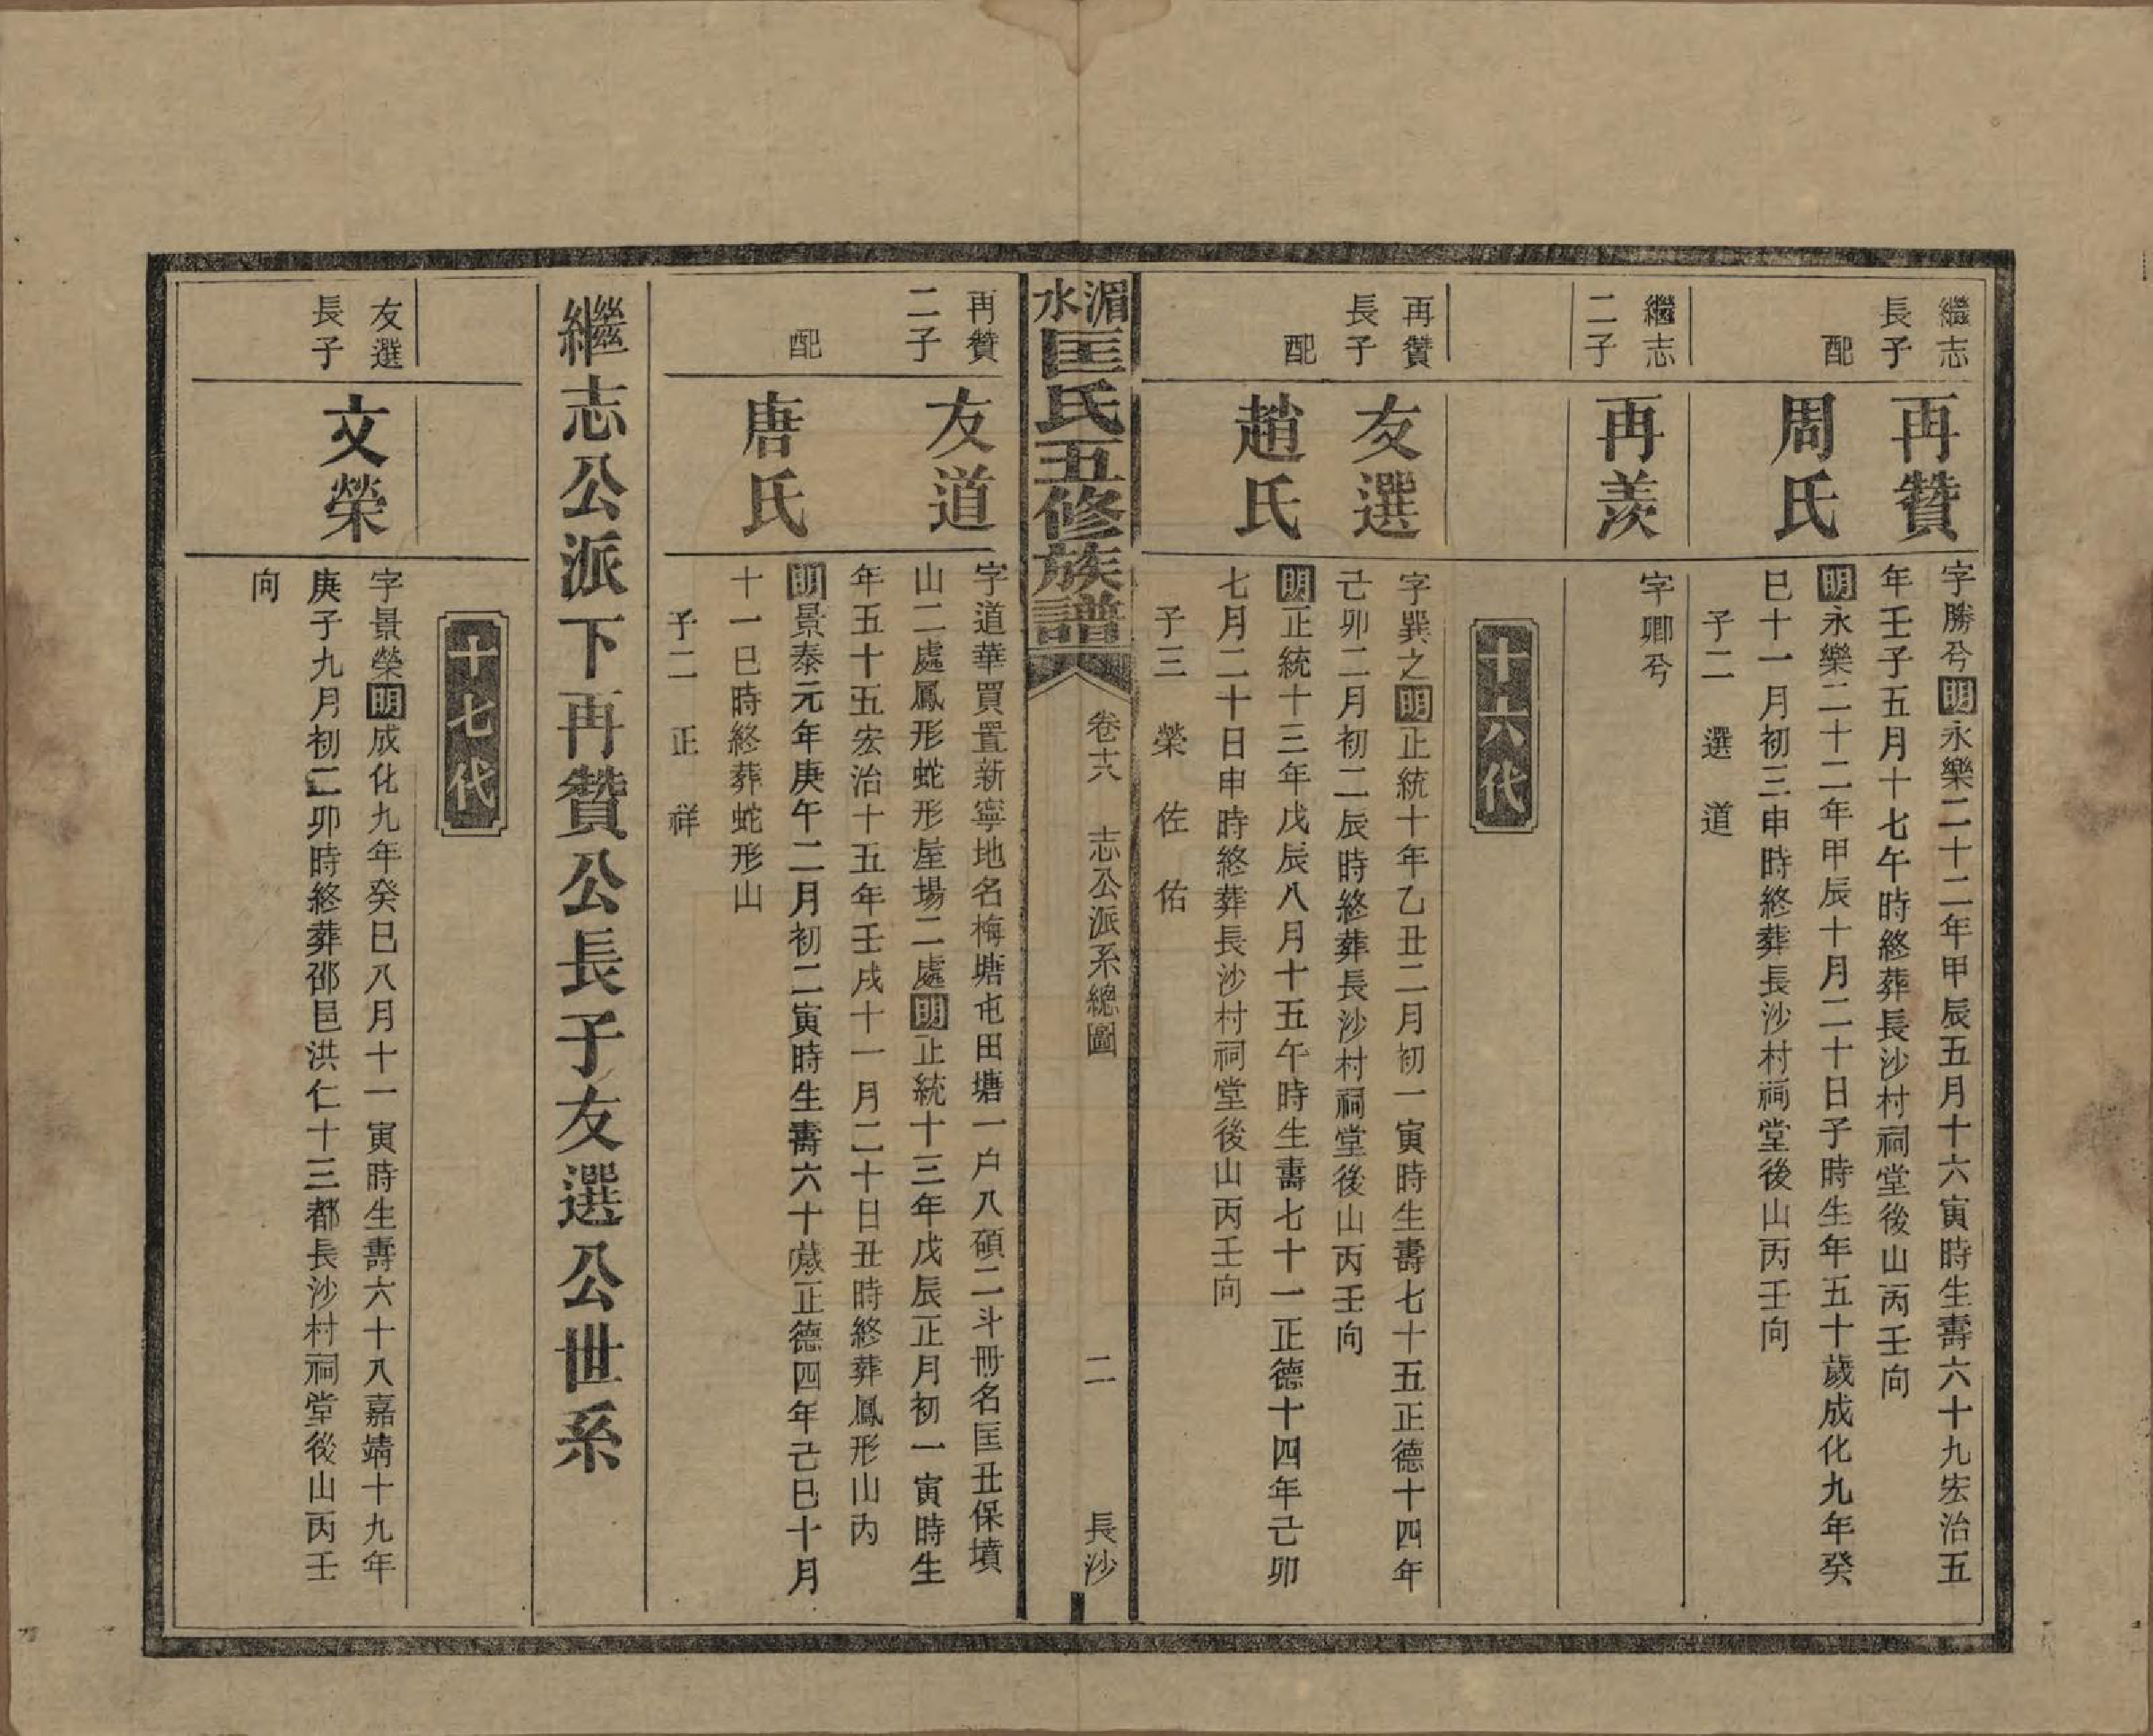 繼志
長子
再贊
字勝兮明永樂二十二年甲辰五月十六寅時生壽六十九宏治五
年壬子五月十七午時終葬長沙村祠堂後山丙壬向
配
周氏
明永樂二十二年甲辰十月二十日子時生年五十歲成化九年癸
巳十一月初三申時終葬長沙村祠堂後山丙壬向
子二 選 道
繼志
二子
再羨
字卿兮
十六代
再贊
長子
友選
字巽之明正統十年乙丑二月初一寅時生壽七十五正德十四年
己卯二月初二辰時終葬長沙村祠堂後山丙壬向
配
趙氏
明正統十三年戊辰八月十五午時生壽七十一正德十四年己卯
七月二十日申時終葬長沙村祠堂後山丙壬向
子三 榮 佐 佑
湄水匡氏五修族譜
卷十六 志公派系總圖 二 長沙
再贊
二子
友道
字道華買置新寧地名梅塘屯田塘一户八碩二斗冊名匡丑保墳
山二處鳳形蛇形屋場二處明正統十三年戊辰正月初一寅時生
年五十五宏治十五年壬戌十一月二十日丑時終葬鳳形山內
配
唐氏
明景泰元年庚午二月初二寅時生壽六十歲正德四年己巳十月
十一巳時終葬蛇形山
子二 正 祥
繼志公派下再贊公長子友選公世系
十七代
友選
長子
文榮
字景榮明成化九年癸巳八月十一寅時生壽六十八嘉靖十九年
庚子九月初二卯時終葬邵邑洪仁十三都長沙村祠堂後山丙壬
向